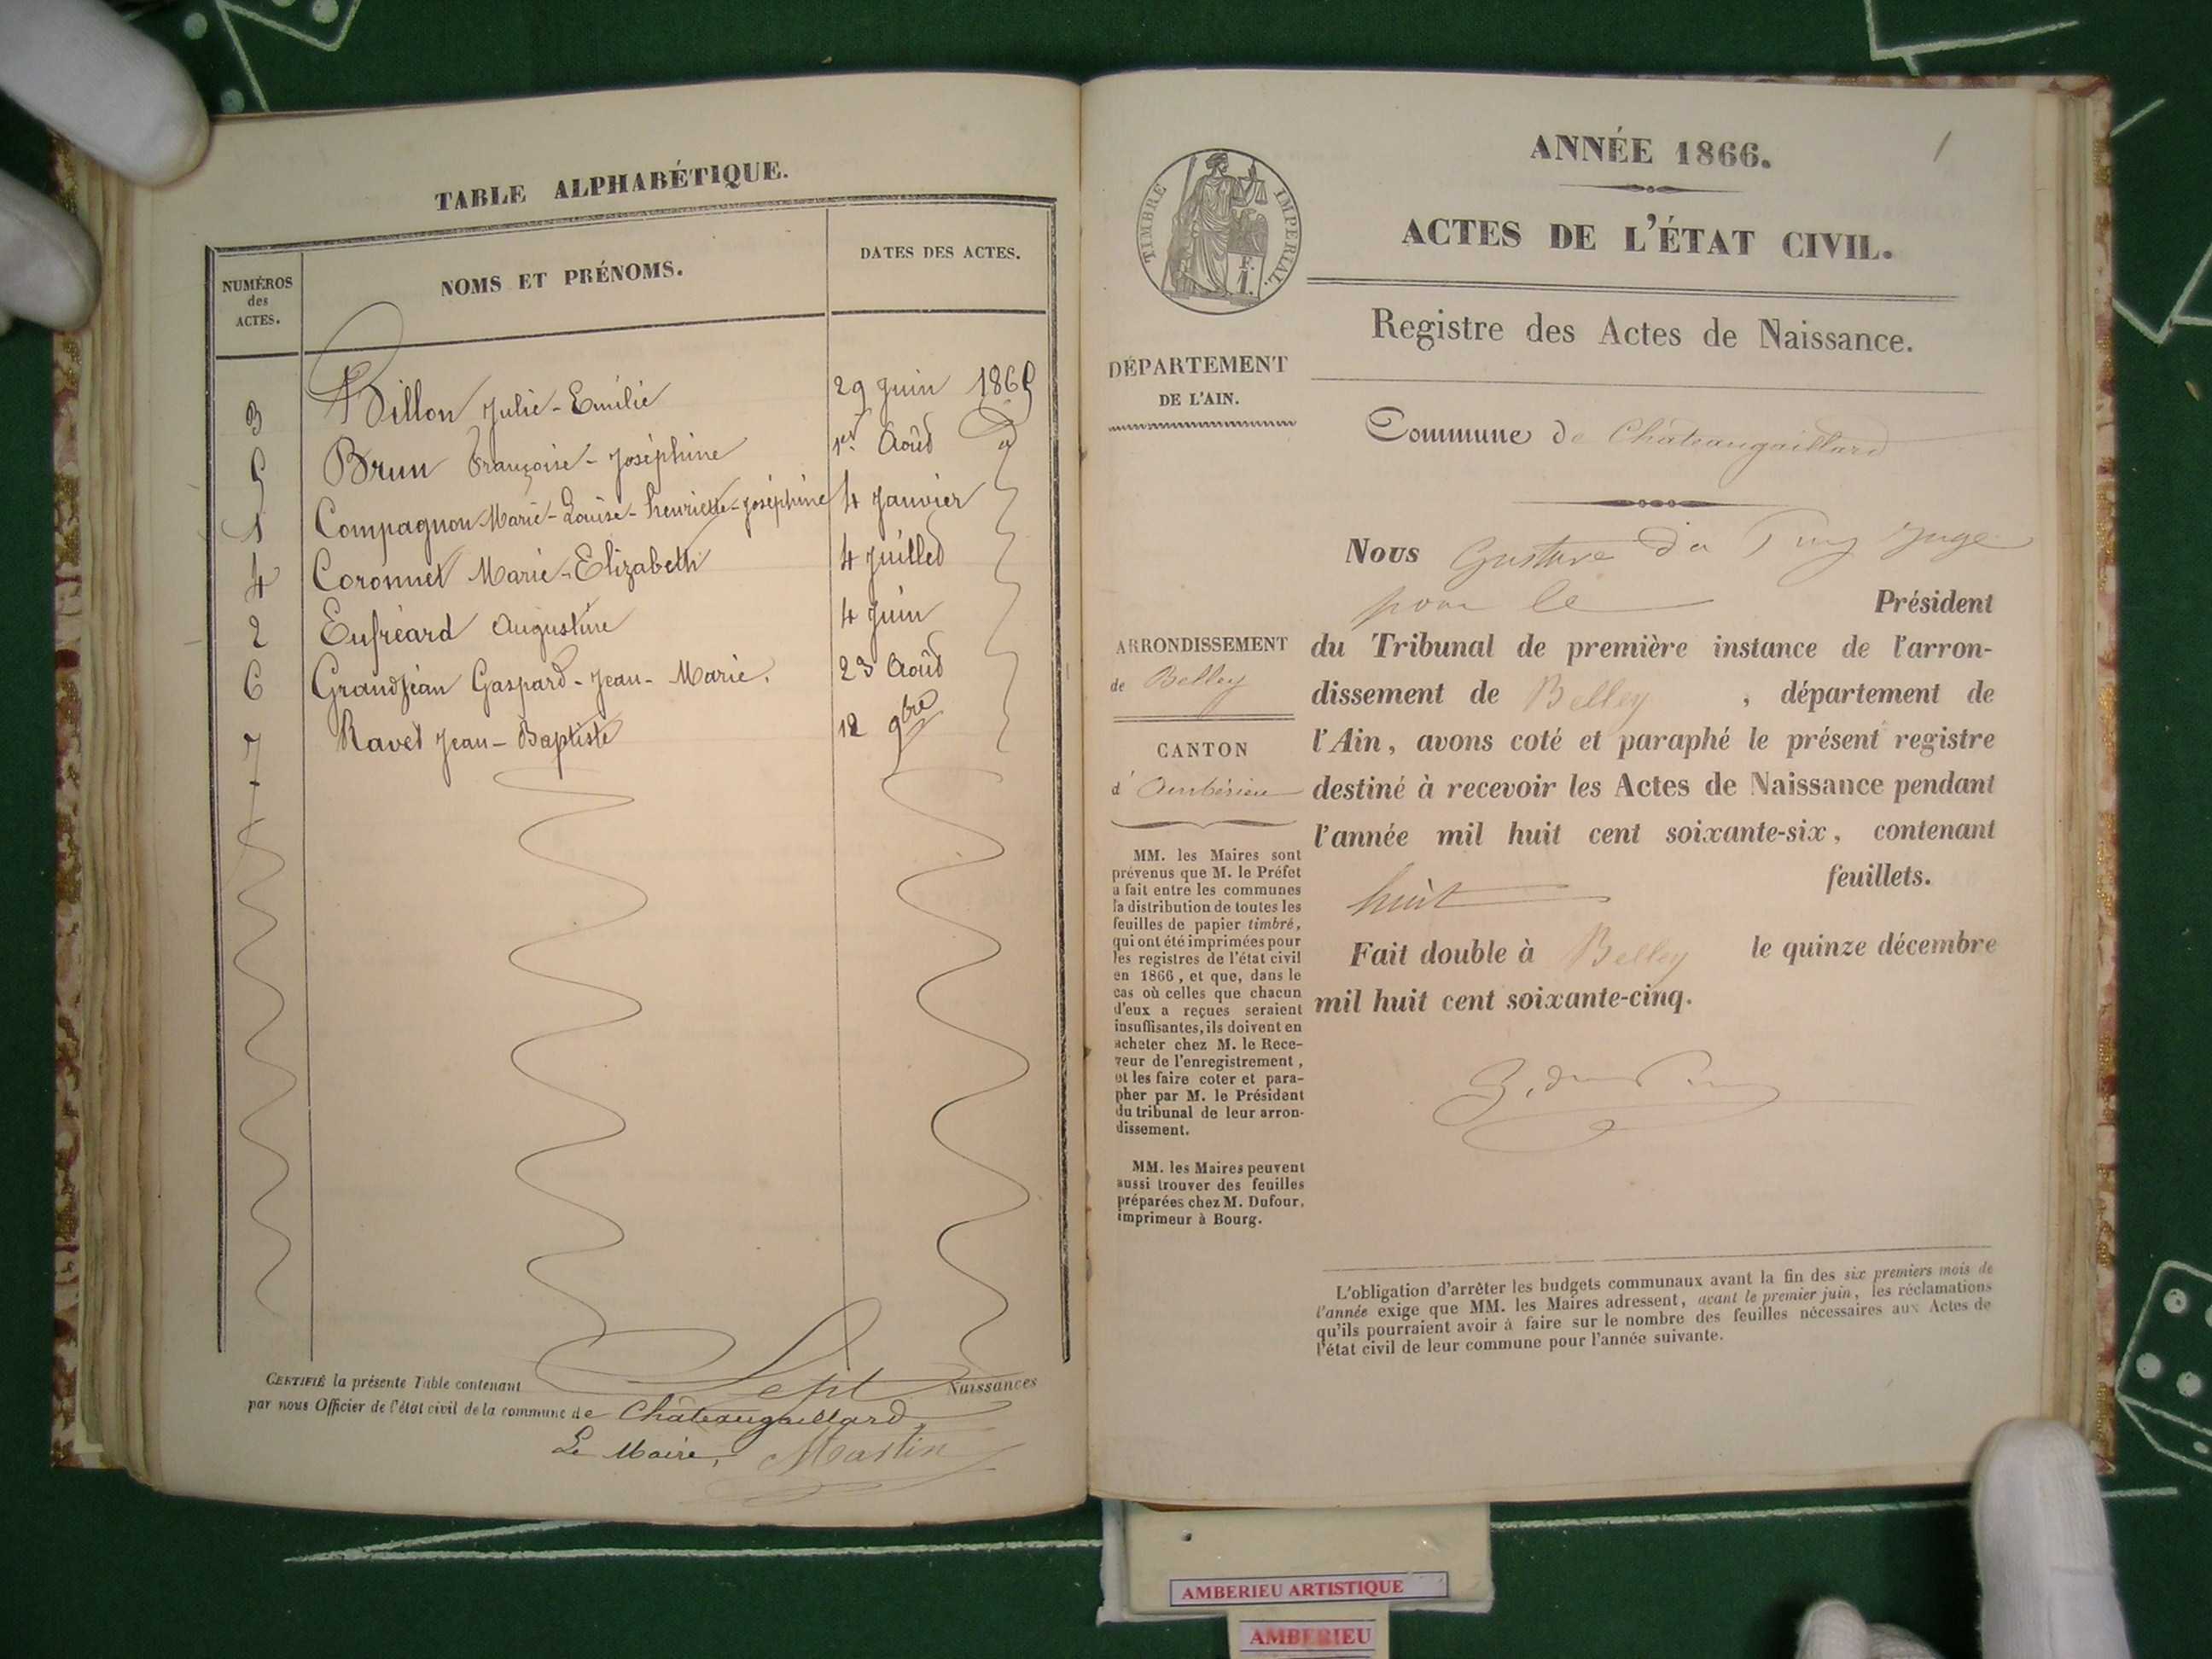 TABLE ALPHABÉTIQUE.
NUMÉROS
des
ACTES.
NOMS ET PRÉNOMS.
DATES DES ACTES.
3 Billon Julie-Emilie 29 Juin 1865
5 Brun Françoise-Joséphine 1er Août d
1 Compagnon Marie-Louise-henriette-Joséphine 4 Janvier
4 Coronnet Marie-Elizabeth 4 Juillet
2 Eufréard Augustine 4 Juin
6 Grandjean Gaspard-Jean-Marie. 23 Août
7 Ravet Jean-Baptiste 12 9bre
CERTIFIÉ la présente Table contenant Sept Naissances
par nous Officier de l'état civil de la commune de Châteaugaillard
Le Maire, Martin
1
ANNÉE 1866.
ACTES DE L'ÉTAT CIVIL.
TIMBRE IMPERIAL.
F.
1.
Registre des Actes de Naissance.
DÉPARTEMENT
DE L'AIN.
Commune de Châteaugaillard
ARRONDISSEMENT
de Belley
CANTON
d' Ambérieu
MM. les Maires sont
prévenus que M. le Préfet
a fait entre les communes
la distribution de toutes les
feuilles de papier timbré,
qui ont été imprimées pour
les registres de l'état civil
en 1866, et que, dans le
cas où celles que chacun
d'eux a reçues seraient
insuffisantes, ils doivent en
acheter chez M. le Rece-
veur de l'enregistrement,
et les faire coter et para-
pher par M. le Président
du tribunal de leur arron-
dissement.
MM. les Maires peuvent
aussi trouver des feuilles
préparées chez M. Dufour,
imprimeur à Bourg.
Nous Gustave du Puy Juge
pour le Président
du Tribunal de première instance de l'arron-
dissement de Belley, département de
l'Ain, avons coté et paraphé le présent registre
destiné à recevoir les Actes de Naissance pendant
l'année mil huit cent soixante-six, contenant
huit feuillets.
Fait double à Belley le quinze décembre
mil huit cent soixante-cinq.
G. du Puy
L'obligation d'arrêter les budgets communaux avant la fin des six premiers mois de
l'année exige que MM. les Maires adressent, avant le premier juin, les réclamations
qu'ils pourraient avoir à faire sur le nombre des feuilles nécessaires aux Actes de
l'état civil de leur commune pour l'année suivante.
AMBERIEU ARTISTIQUE
AMBERIEU